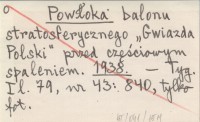 Powłoka balonu
stratosferycznego „Gwiazda
Polski" przed częściowym
spaleniem. 1938. — Tyg.
Il. 79, nr 43: 840, tylko
fot.